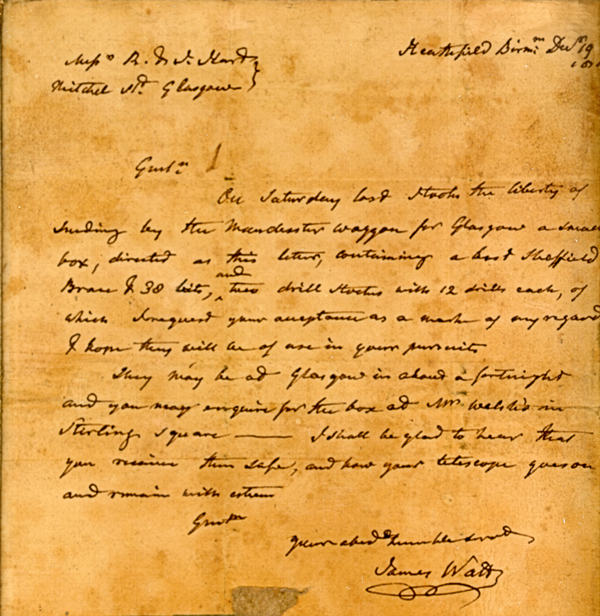 Heathfield Birm.m Dec.r 19
Mess.rs R. & J. Hart
Mitchel St. Glasgow
Gentn
On Saturday last I took the liberty of
sending by the Manchester waggon for Glasgow a small
box, directed as this letter, containing a best Sheffield
Brace & 38 bits, and two drill stocks with 12 drills each, of
which I request your acceptance as a mark of my regard
& hope they will be of use in your pursuits
They may be at Glasgow in about a fortnight
and you may enquire for the box at Mr. Welsh's in
Stirling Square — I shall be glad to hear that
you receive them safe, and how your telescope goes on
and remain with esteem
Gentn
your obed humble servt
James Watt